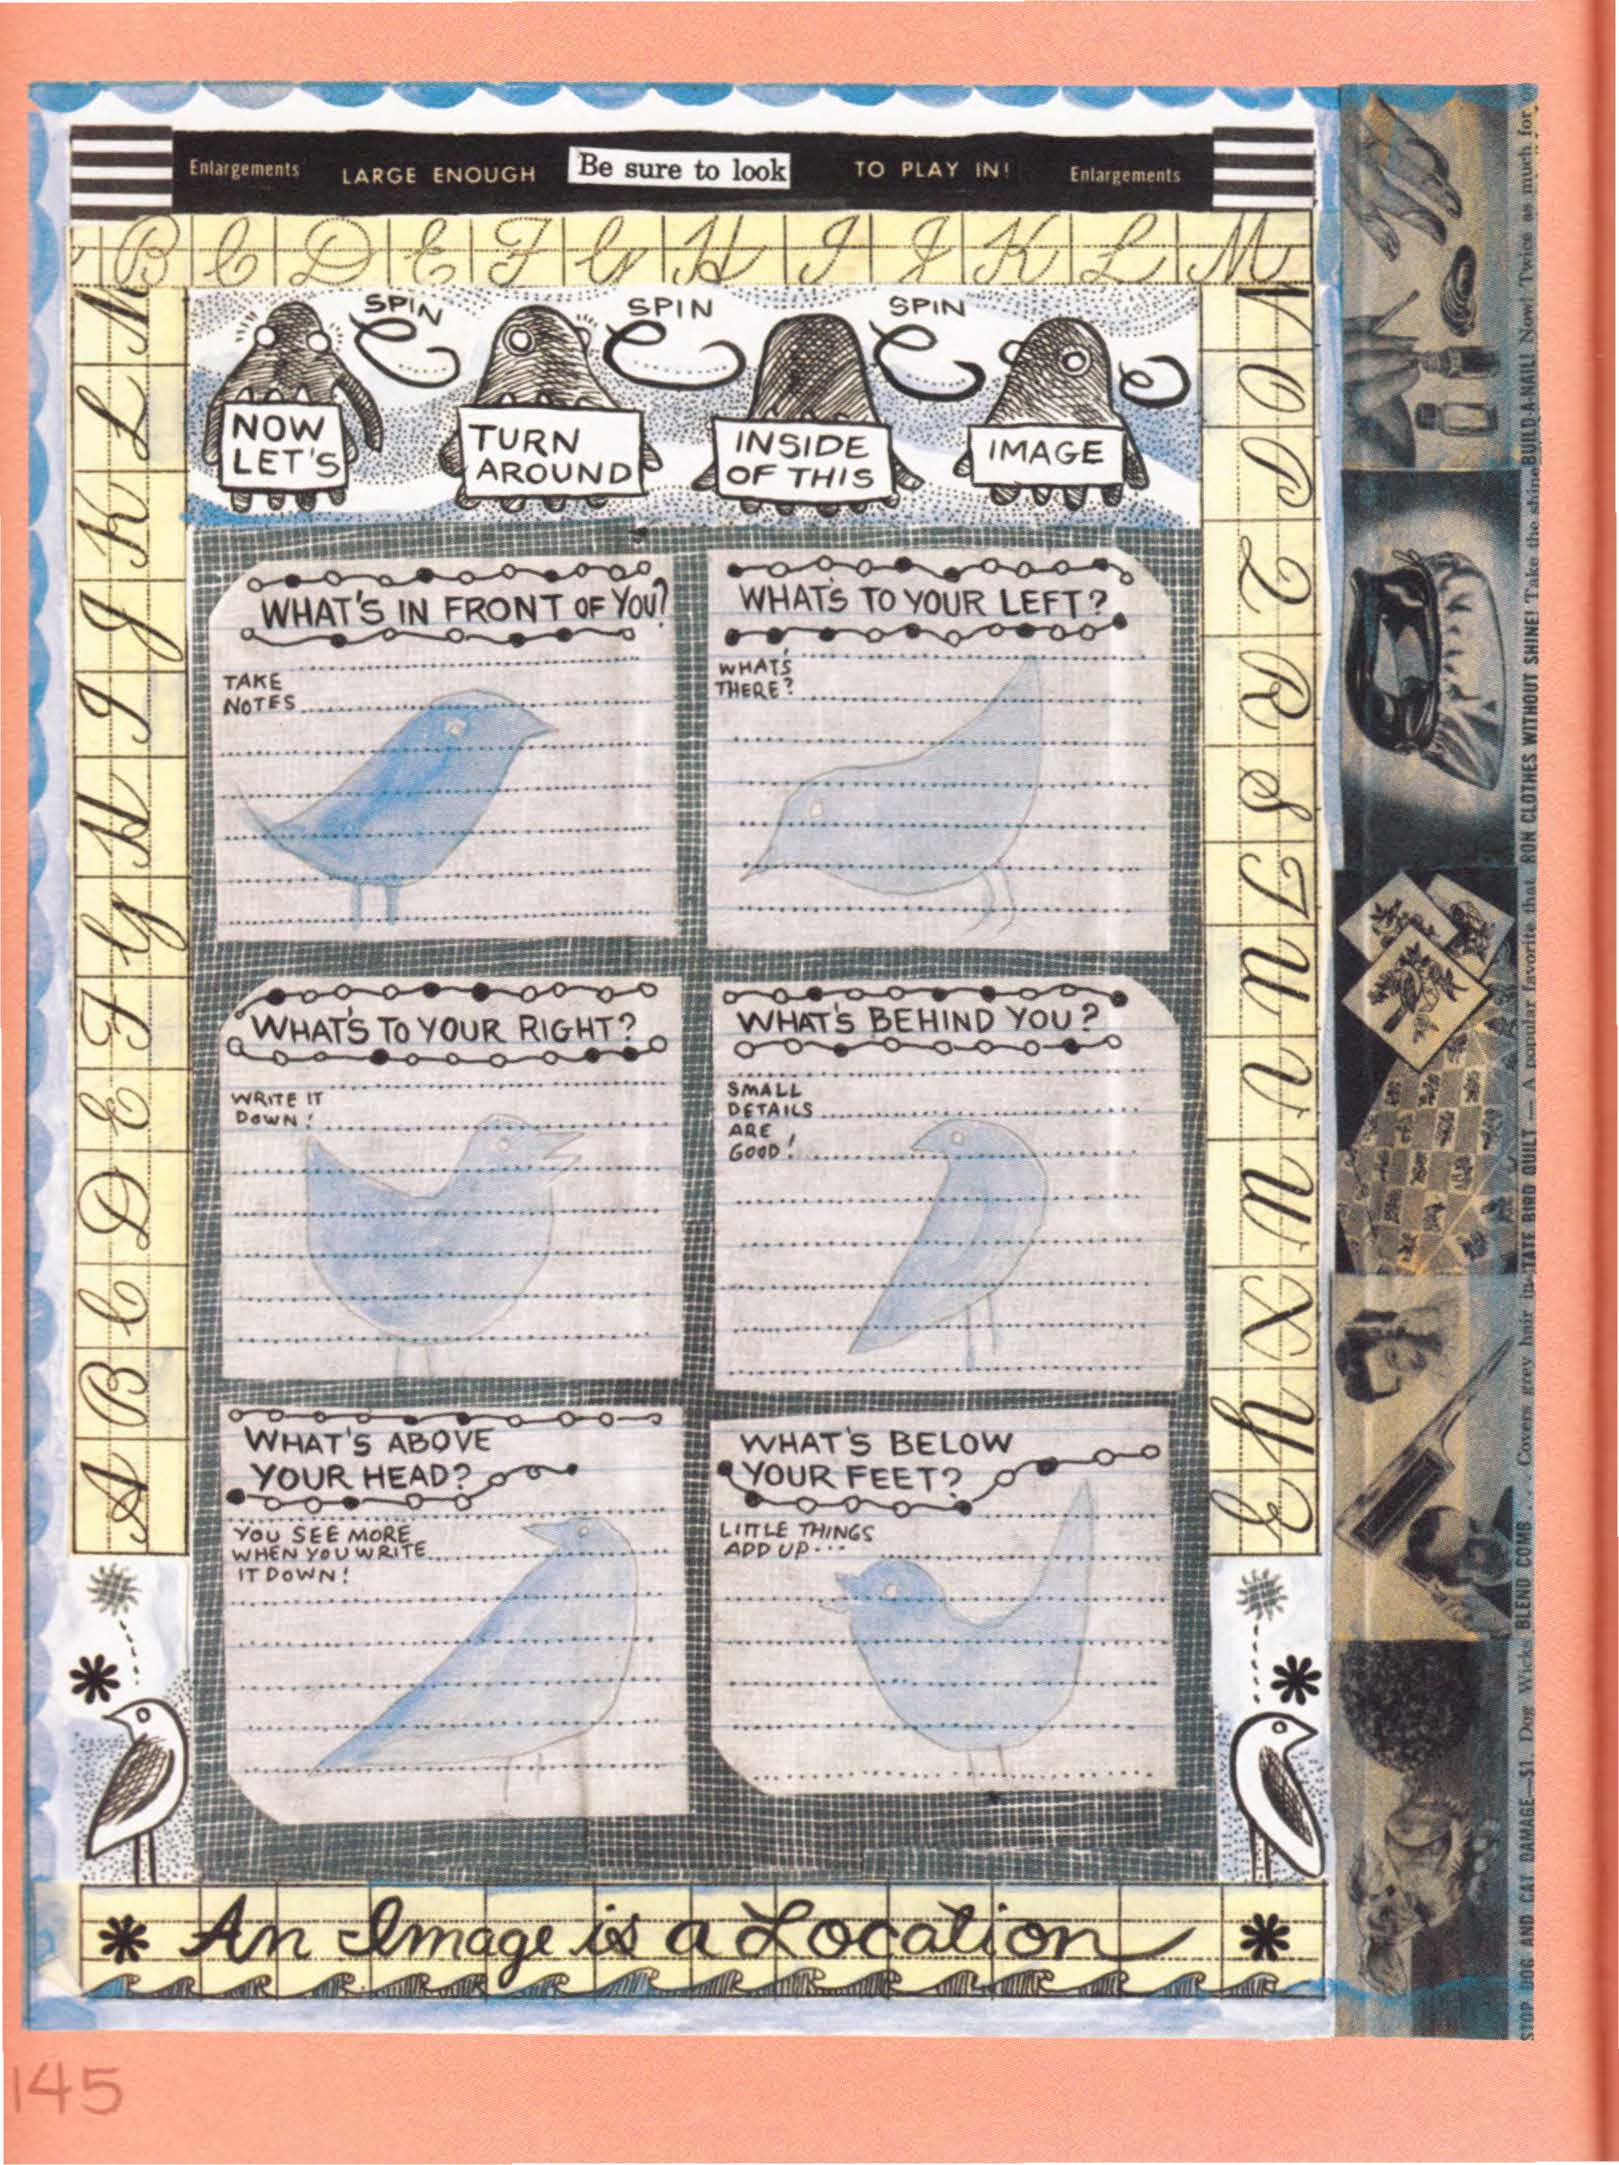 Enlargements LARGE ENOUGH Be sure to look TO PLAY IN! Enlargements
B C D E F G H I J K L M
SPIN SPIN SPIN
NOW
LET'S
TURN
AROUND
INSIDE
OF THIS
IMAGE
WHAT'S IN FRONT OF YOU?
TAKE
NOTES
WHAT'S TO YOUR LEFT?
WHAT'S
THERE?
WHAT'S TO YOUR RIGHT?
WRITE IT
DOWN!
WHAT'S BEHIND YOU?
SMALL
DETAILS
ARE
GOOD!
WHAT'S ABOVE
YOUR HEAD?
YOU SEE MORE
WHEN YOU WRITE
IT DOWN!
WHAT'S BELOW
YOUR FEET?
LITTLE THINGS
ADD UP...
A B C D E F G H I J K L M
N O P Q R S T U V W X Y Z
An Image is a Location
STOP DOG AND CAT DAMAGE—$1. Dog Wick BLEND COMB . . . Covers grey hair in TATE BIRD QUILT — A popular favorite that RON CLOTHES WITHOUT SHINE! Take the shine BUILD-A-NAIL! Now! Twice as much for
145